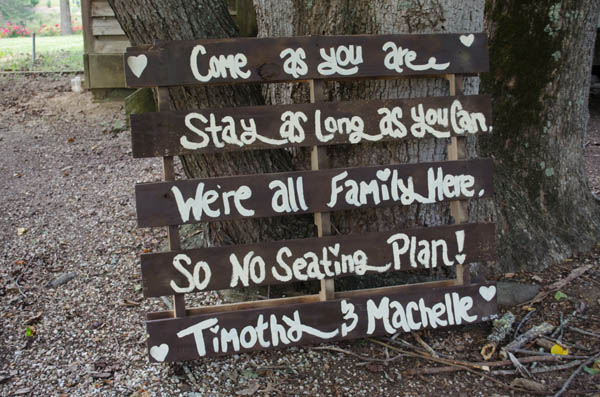 Come as you are
Stay as Long as you Can.
We're all Family Here.
So No Seating Plan!
Timothy & Machelle